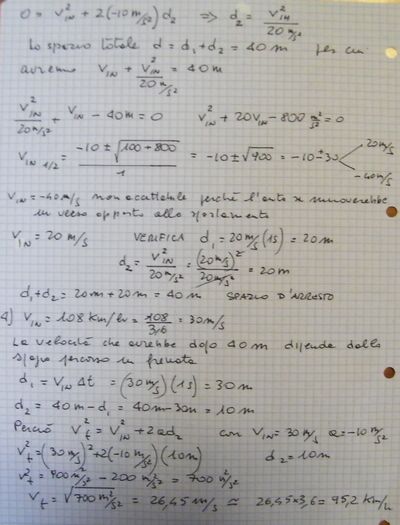 0 = V²IN + 2(-10 m/s²) d₂ ⇒ d₂ = V²IN / 20 m/s²
Lo spazio totale d = d₁ + d₂ = 40 m per cui
avremo VIN + V²IN / 20 m/s² = 40 m
V²IN / 20 m/s² + VIN - 40m = 0 V²IN + 20VIN - 800 m²/s² = 0
VIN 1/2 = -10 ± √(100 + 800) / 1 = -10 ± √900 = -10 ± 30 20 m/s
-40 m/s
VIN = -40 m/s non accettabile perché l'auto si muoverebbe
in verso opposto allo spostamento
VIN = 20 m/s VERIFICA d₁ = 20 m/s (1s) = 20 m
d₂ = V²IN / 20 m/s² = (20 m/s)² / 20 m/s² = 20 m
d₁ + d₂ = 20m + 20m = 40 m SPAZIO D'ARRESTO
4) VIN = 108 Km/h = 108 / 3,6 = 30 m/s
La velocità che avrebbe dopo 40 m dipende dallo
spazio percorso in frenata
d₁ = VIN Δt = (30 m/s)(1s) = 30 m
d₂ = 40m - d₁ = 40m - 30m = 10 m
Perciò V²t = V²IN + 2ad₂ con VIN = 30 m/s a = -10 m/s²
V²t = (30 m/s)² + 2(-10 m/s²)(10m) d₂ = 10m
V²t = 900 m²/s² - 200 m²/s² = 700 m²/s²
Vt = √700 m²/s² = 26,45 m/s ≃ 26,45 x 3,6 = 95,2 Km/h